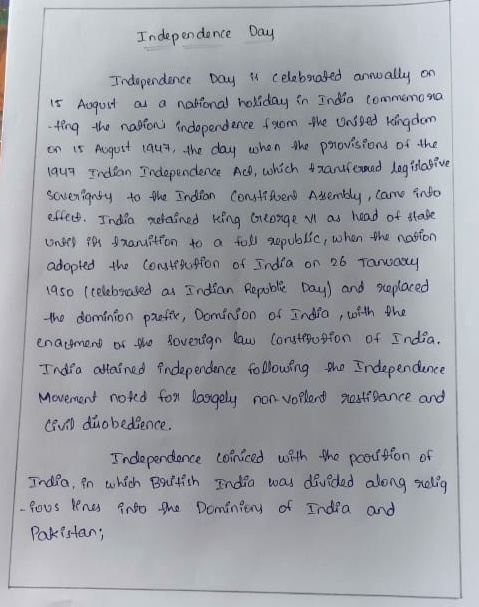 Independence Day
Independence Day is celebrated annually on
15 August as a national holiday in India commemora
-ting the nation's independence from the United Kingdom
on 15 August 1947, the day when the provisions of the
1947 Indian Independence Act, which transferred legislative
Soverignty to the Indian Constituent Assembly, came into
effect. India retained King George VI as head of state
until its transition to a full republic, when the nation
adopted the Constitution of India on 26 January
1950 (celebrated as Indian Republic Day) and replaced
the dominion prefix, Dominion of India, with the
enactment of the Soverign law Constitution of India.
India attained independence following the Independence
Movement noted for largely non-voilent resistance and
Civil disobedience.
Independence coiniced with the partition of
India, in which British India was divided along relig
-ious lines into the Dominions of India and
Pakistan;